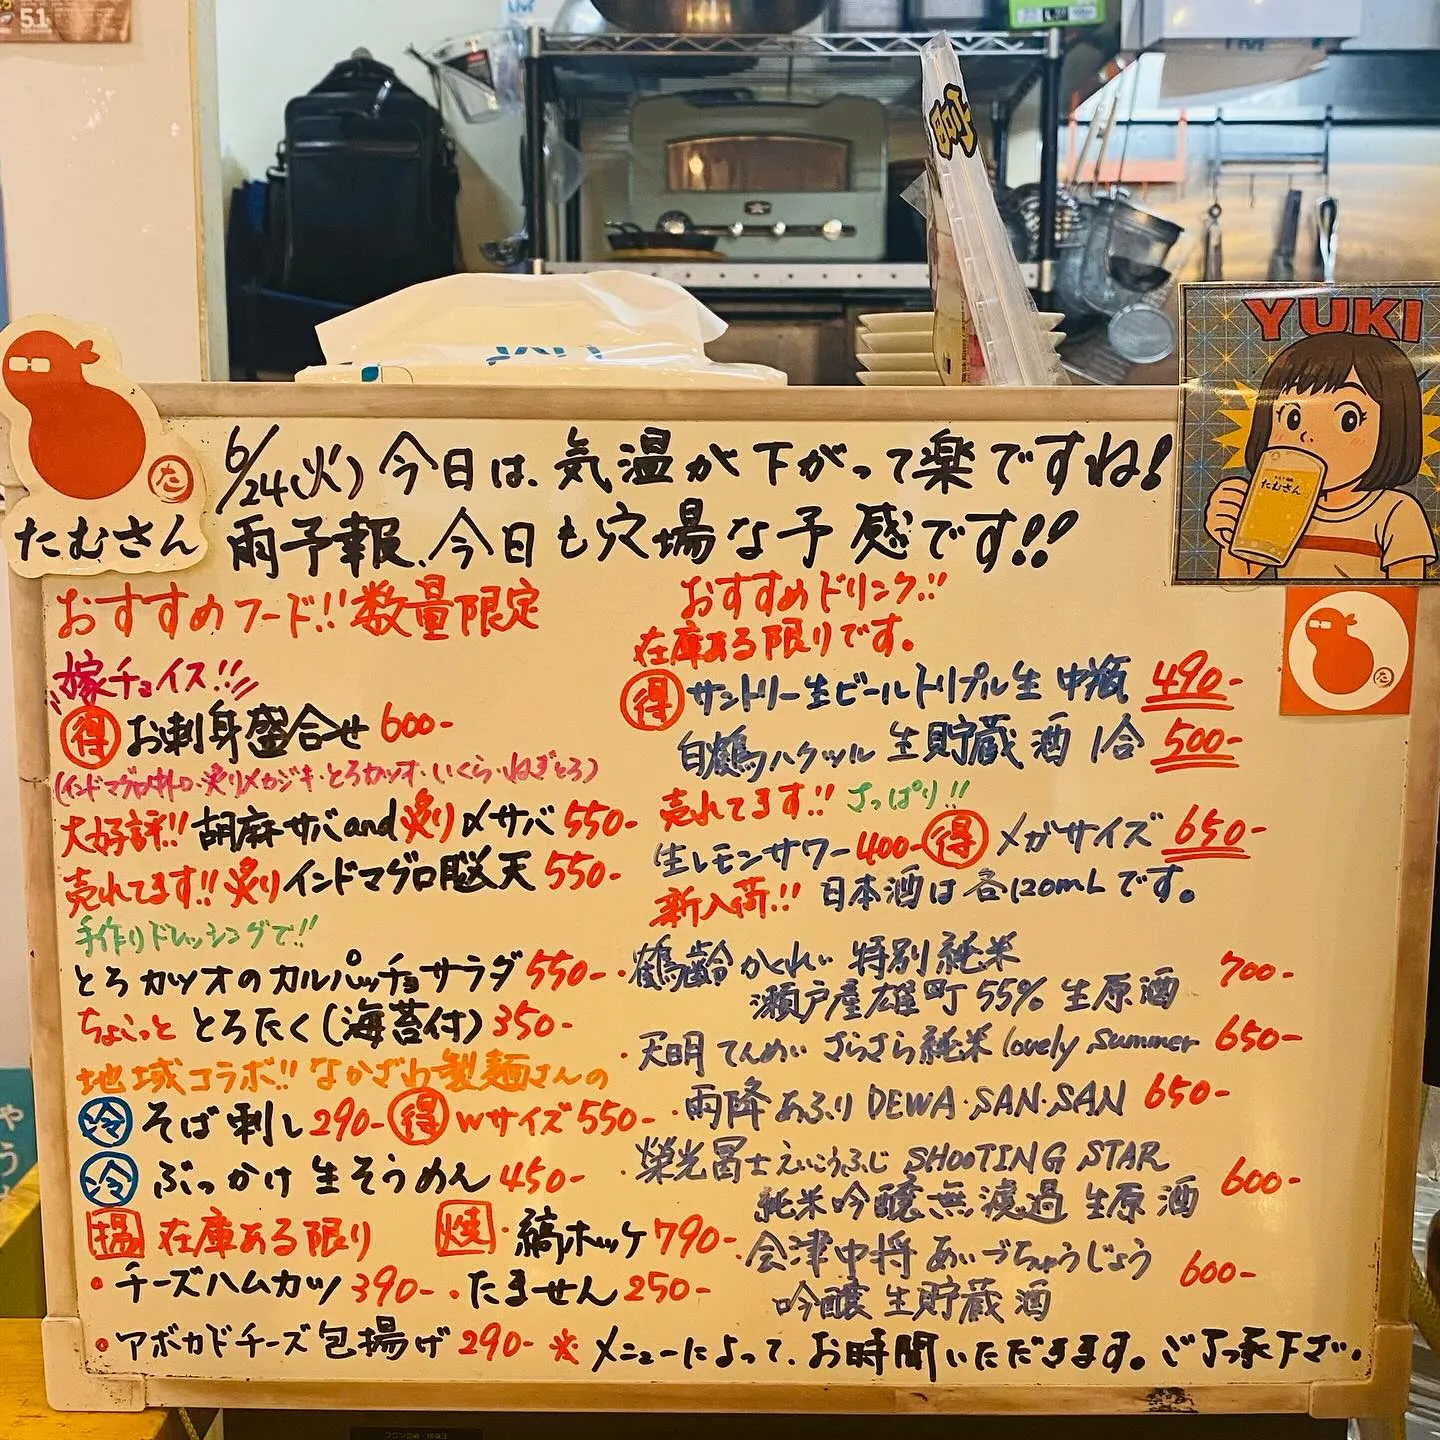 51
YUKI
たむさん
た
たむさん
6/24(火) 今日は、気温が下がって楽ですね!
雨予報、今日も穴場な予感です!!
おすすめフード!! 数量限定
嫁チョイス!!
得 お刺身盛合せ 600-
(インドマグロ ・炙りメカジキ・とろカツオ・いくら・ねぎとろ)
大好評!! 胡麻サバand炙り〆サバ 550-
売れてます!! 炙りインドマグロ脳天 550-
手作りドレッシングで!!
とろカツオのカルパッチョサラダ 550-
ちょこっと とろたく(海苔付) 350-
地域コラボ!! なかざわ製麺さんの
冷 そば刺し 290- 得 Wサイズ 550-
冷 ぶっかけ生そうめん 450-
揚 在庫ある限り 焼 ・縞ホッケ 790-
・チーズハムカツ 390- ・たません 250-
・アボカドチーズ包揚げ 290-
おすすめドリンク!!
在庫ある限りです。
得 サントリー生ビールトリプル生 中瓶 490-
白鶴ハクツル 生貯蔵酒 1合 500-
売れてます!! さっぱり!!
生レモンサワー 400- 得 メガサイズ 650-
新入荷!! 日本酒は各120mLです。
・鶴齢 かくれい 特別純米
瀬戸屋雄町55% 生原酒 700-
・天明 てんめい さらさら純米 lovely summer 650-
・雨降 あふり DEWA・SAN・SAN 650-
・榮光冨士 えいこうふじ SHOOTING STAR
純米吟醸無濾過生原酒 600-
・会津中将 あいづちゅうじょう
吟醸生貯蔵酒 600-
※ メニューによって、お時間いただきます。ご了承下さい。